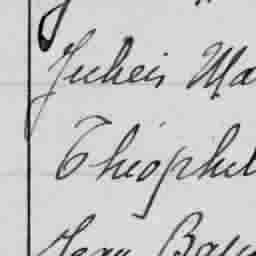 Julien Ma
Théophil
Jean Bap